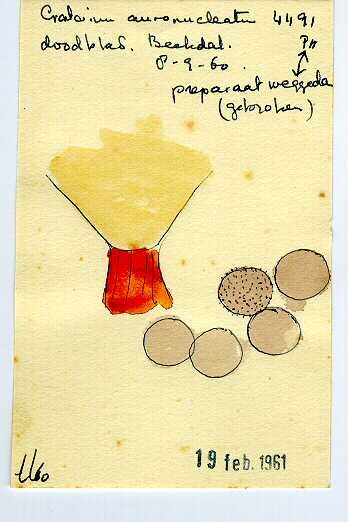 Craterium aureonucleatum 4491
doodblad. Beekdal. PH
8-9-60.
preparaat weggedaan
(gebroken)
1160
19 feb. 1961